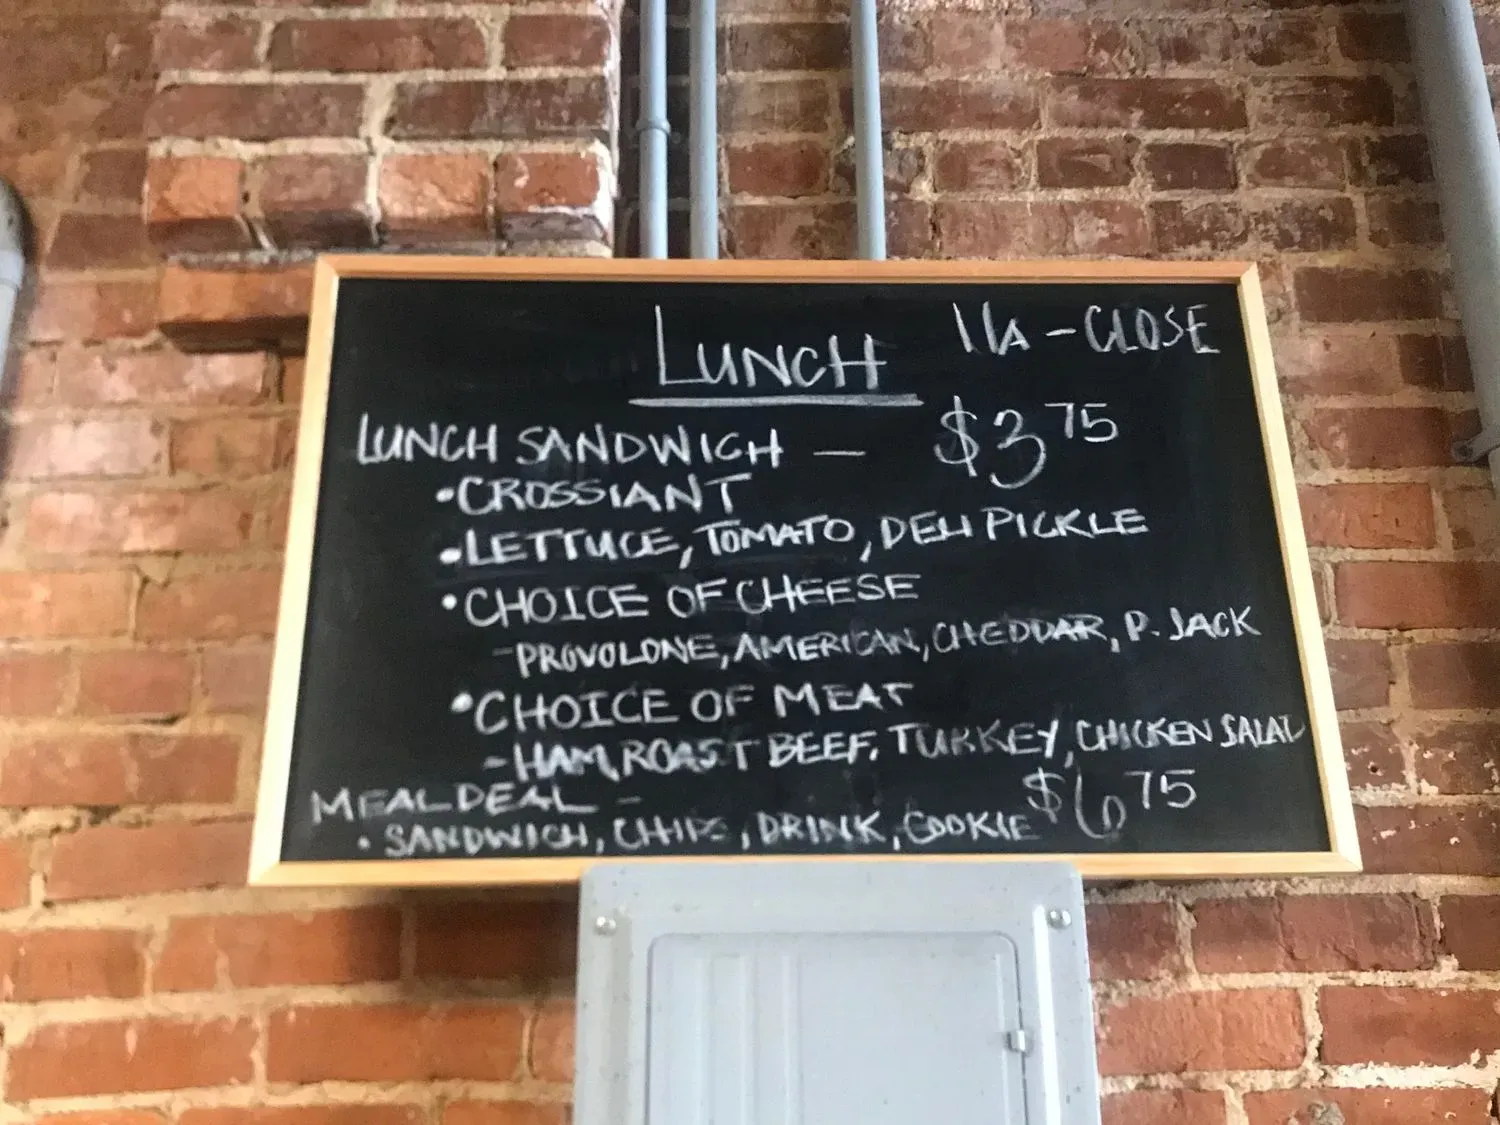 LUNCH 11A - CLOSE
LUNCH SANDWICH — $3 75
•CROSSIANT
•LETTUCE, TOMATO, DELI PICKLE
•CHOICE OF CHEESE
-PROVOLONE, AMERICAN, CHEDDAR, P. JACK
•CHOICE OF MEAT
-HAM, ROAST BEEF, TURKEY, CHICKEN SALAD
MEAL DEAL - $6 75
• SANDWICH, CHIPS, DRINK, COOKIE